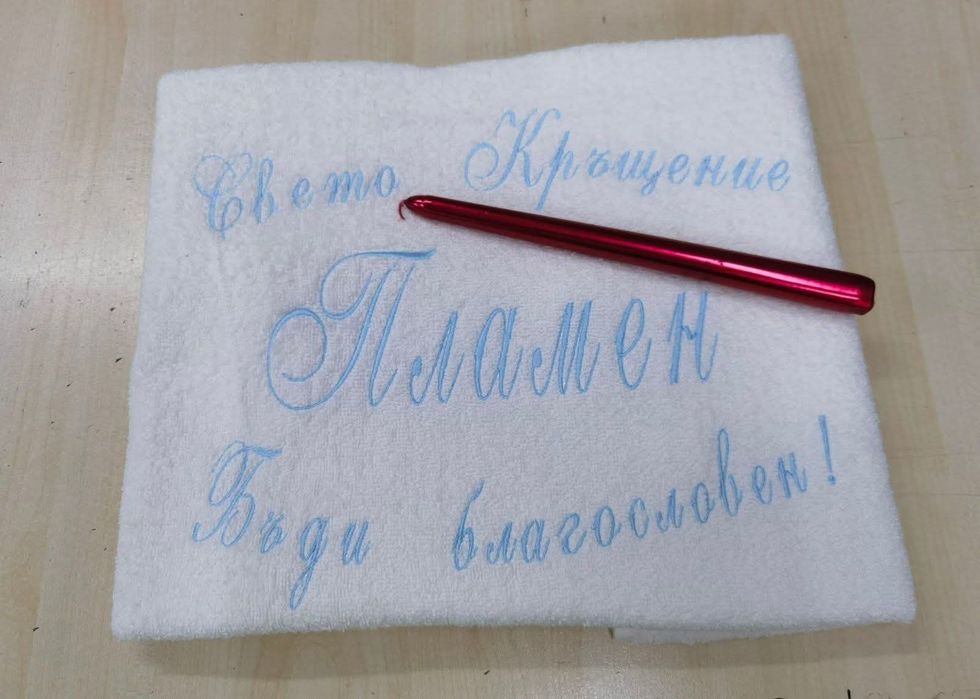 Свето Кръщение
Пламен
Бъди благословен!